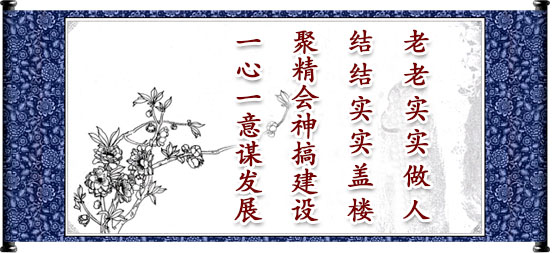 老老实实做人
结结实实盖楼
聚精会神搞建设
一心一意谋发展